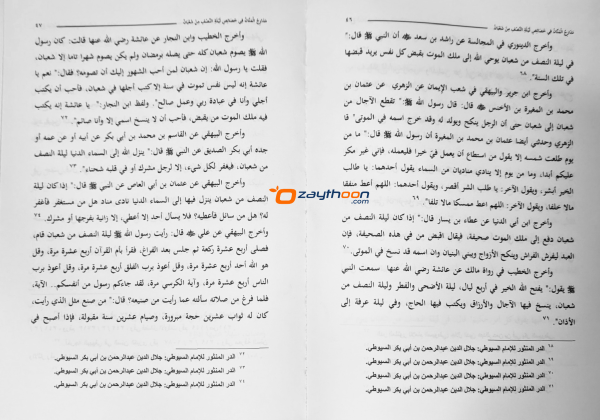 مدارج الملك في خصائص ليلة النصف من شعبان
٤٦
وأخرج الدينوري في المجالسة عن راشد بن سعد أن النبي ﷺ قال:"
في ليلة النصف من شعبان يوحي الله إلى ملك الموت بقبض كل نفس يريد قبضها
في تلك السنة". ٦٨
وأخرج ابن جرير والبيهقي في شعب الإيمان عن الزهري عن عثمان بن
محمد بن المغيرة بن الأخنس قال: قال رسول الله ﷺ:" تقطع الآجال من
شعبان إلى شعبان حتى أن الرجل ينكح ويولد له وقد خرج اسمه في الموتى" قال
الزهري وحدثني أيضا عثمان بن محمد بن المغيرة أن رسول الله ﷺ قال:" ما من
يوم طلعت شمسه إلا يقول من استطاع أن يعمل فيّ خيرا فليعمله، فإني غير مكر
عليكم أبدا، وما من يوم إلا ينادي مناديان من السماء يقول أحدهما: يا طالب
الخير أبشر، ويقول الآخر: يا طالب الشر أقصر، ويقول أحدهما: اللهم أعط منفقا
مالا خلفا، ويقول الآخر: اللهم أعط ممسكا مالا تلفا". ٦٩
وأخرج ابن أبي الدنيا عن عطاء بن يسار قال:" إذا كان ليلة النصف من
شعبان دفع إلى ملك الموت صحيفة، فيقال اقبض من في هذه الصحيفة، فإن
العبد ليفرش الفراش وينكح الأزواج ويبني البنيان وإن اسمه قد نسخ في الموتى. ٧٠
وأخرج الخطيب في رواة مالك عن عائشة رضي الله عنها سمعت النبي
ﷺ يقول:" يفتح الله الخير في أربع ليال، ليلة الأضحى والفطر وليلة النصف من
شعبان، ينسخ فيها الآجال والأرزاق ويكتب فيها الحاج، وفي ليلة عرفة إلى
الأذان". ٧١
٦٨ الدر المنثور للإمام السيوطي: جلال الدين عبدالرحمن بن أبي بكر السيوطي.
٦٩ الدر المنثور للإمام السيوطي: جلال الدين عبدالرحمن بن أبي بكر السيوطي.
٧٠ الدر المنثور للإمام السيوطي: جلال الدين عبدالرحمن بن أبي بكر السيوطي.
٧١ الدر المنثور للإمام السيوطي: جلال الدين عبدالرحمن بن أبي بكر السيوطي.
في خصائص ليلة النصف من شعبان
٤٧
وأخرج الخطيب وابن النجار عن عائشة رضي الله عنها قالت: كان رسول
الله ﷺ يصوم شعبان كله حتى يصله برمضان ولم يكن يصوم شهرا تاما إلا شعبان،
فقلت يا رسول الله: إن شعبان لمن أحب الشهور إليك أن تصومه؟ فقال:" نعم يا
عائشة إنه ليس نفس تموت في سنة إلا كتب أجلها في شعبان، فأحب أن يكتب
أجلي وأنا في عبادة ربي وعمل صالح". ولفظ ابن النجار:" يا عائشة إنه يكتب
فيه ملك الموت من يقبض، فأحب أن لا ينسخ اسمي إلا وأنا صائم". ٧٢
وأخرج البيهقي عن القاسم بن محمد بن أبي بكر عن أبيه أو عن عمه أو
جده أبي بكر الصديق عن النبي ﷺ قال:" ينزل الله إلى السماء الدنيا ليلة النصف
من شعبان، فيغفر لكل شيء، إلا لرجل مشرك أو في قلبه شحناء". ٧٣
وأخرج البيهقي عن عثمان بن أبي العاص عن النبي ﷺ قال:" إذا كان ليلة
النصف من شعبان ينزل فيها إلى السماء الدنيا نادى مناد هل من مستغفر فأغفر
له؟ هل من سائل فأعطيه؟ فلا يسأل أحد إلا أعطي، إلا زانية بفرجها أو مشرك.
وأخرج البيهقي عن علي قال: رأيت رسول الله ﷺ ليلة النصف من شعبان قام،
فصلى أربع عشرة ركعة ثم جلس بعد الفراغ، فقرأ بأم القرآن أربع عشرة مرة، وقل
هو الله أحد أربع عشرة مرة، وقل أعوذ برب الفلق أربع عشرة مرة، وقل أعوذ برب
الناس أربع عشرة مرة، وآية الكرسي مرة، لقد جاءكم رسول من أنفسكم... الآية،
فلما فرغ من صلاته سألته عما رأيت من صنيعه؟ قال:" من صنع مثل الذي رأيت،
كان له ثواب عشرين حجة مبرورة، وصيام عشرين سنة مقبولة، فإذا أصبح في
٧٢ الدر المنثور للإمام السيوطي: جلال الدين عبدالرحمن بن أبي بكر السيوطي.
٧٣ الدر المنثور للإمام السيوطي: جلال الدين عبدالرحمن بن أبي بكر السيوطي.
الدر المنثور للإمام السيوطي: جلال الدين عبدالرحمن بن أبي بكر السيوطي.
zaythoon
.com